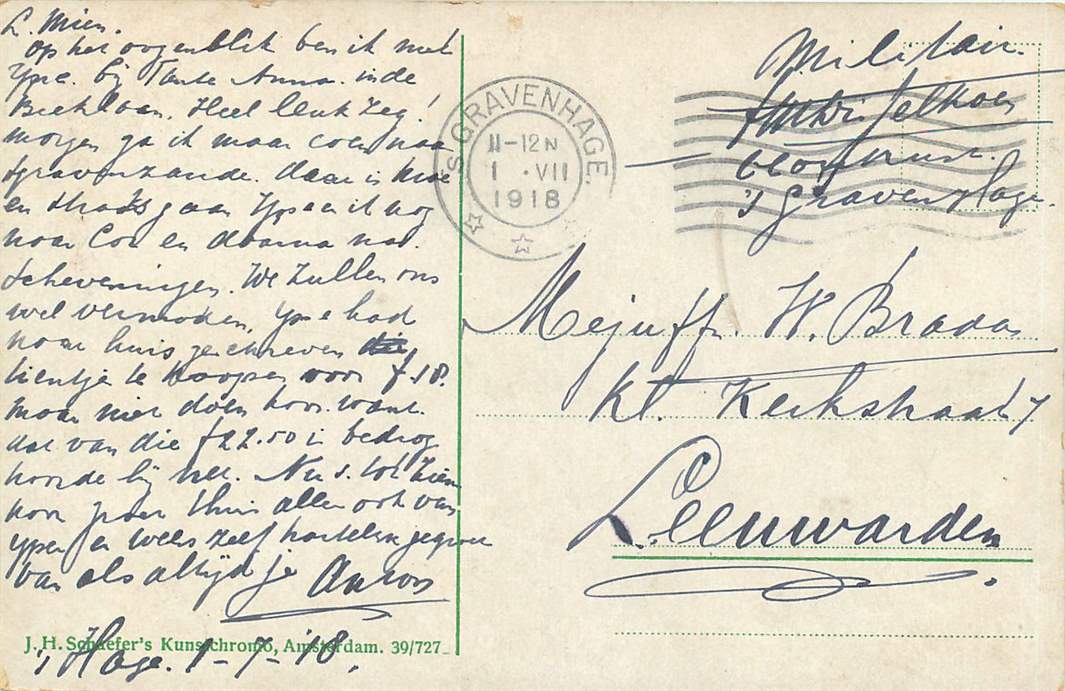 L. Mien.
Op het oogenblik ben ik met
Ype. bij Tante Anna. in de
Heel leuk zeg!
morgen ga ik maar eens naar
sgravenzande. daar is
en straks gaan Ype en ik nog
naar Cor en daarna naar
Scheveningen. We zullen ons
wel vermaken, Ype had
naar huis geschreven
tientje te koopen voor f 18.
maar niet doen hoor. want.
dat van die f 22.50 is bedrog
hoorde hij net. Nu s. tot ziens
hoor groet thuis allen ook van
Ype en wees zelf hartelijk gegroet
van als altijd je Anton
J. H. Schaefer's Kunstchromo, Amsterdam. 39/727
's Hage. 1-7-'18.
'S GRAVENHAGE.
11-12 N
1 . VII
1918
Militair.
's Gravenhage.
Mejuffr. W. Bradas
Kl. Kerkstraat 7
Leeuwarden